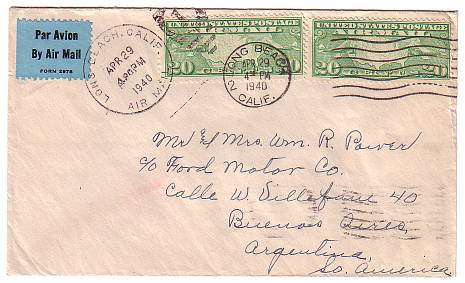 Par Avion
By Air Mail
FORM 2978
LONG BEACH, CALIF.
APR 29
PM
1940
AIR MAIL
UNITED STATES POSTAGE
20 20
LONG BEACH
2
APR 29
PM
1940
CALIF.
UNITED STATES POSTAGE
20 20
Mr & Mrs. Wm. R. Power
c/o Ford Motor Co.
Calle W. Villafane 40
Buenos Aires,
Argentina,
So. America